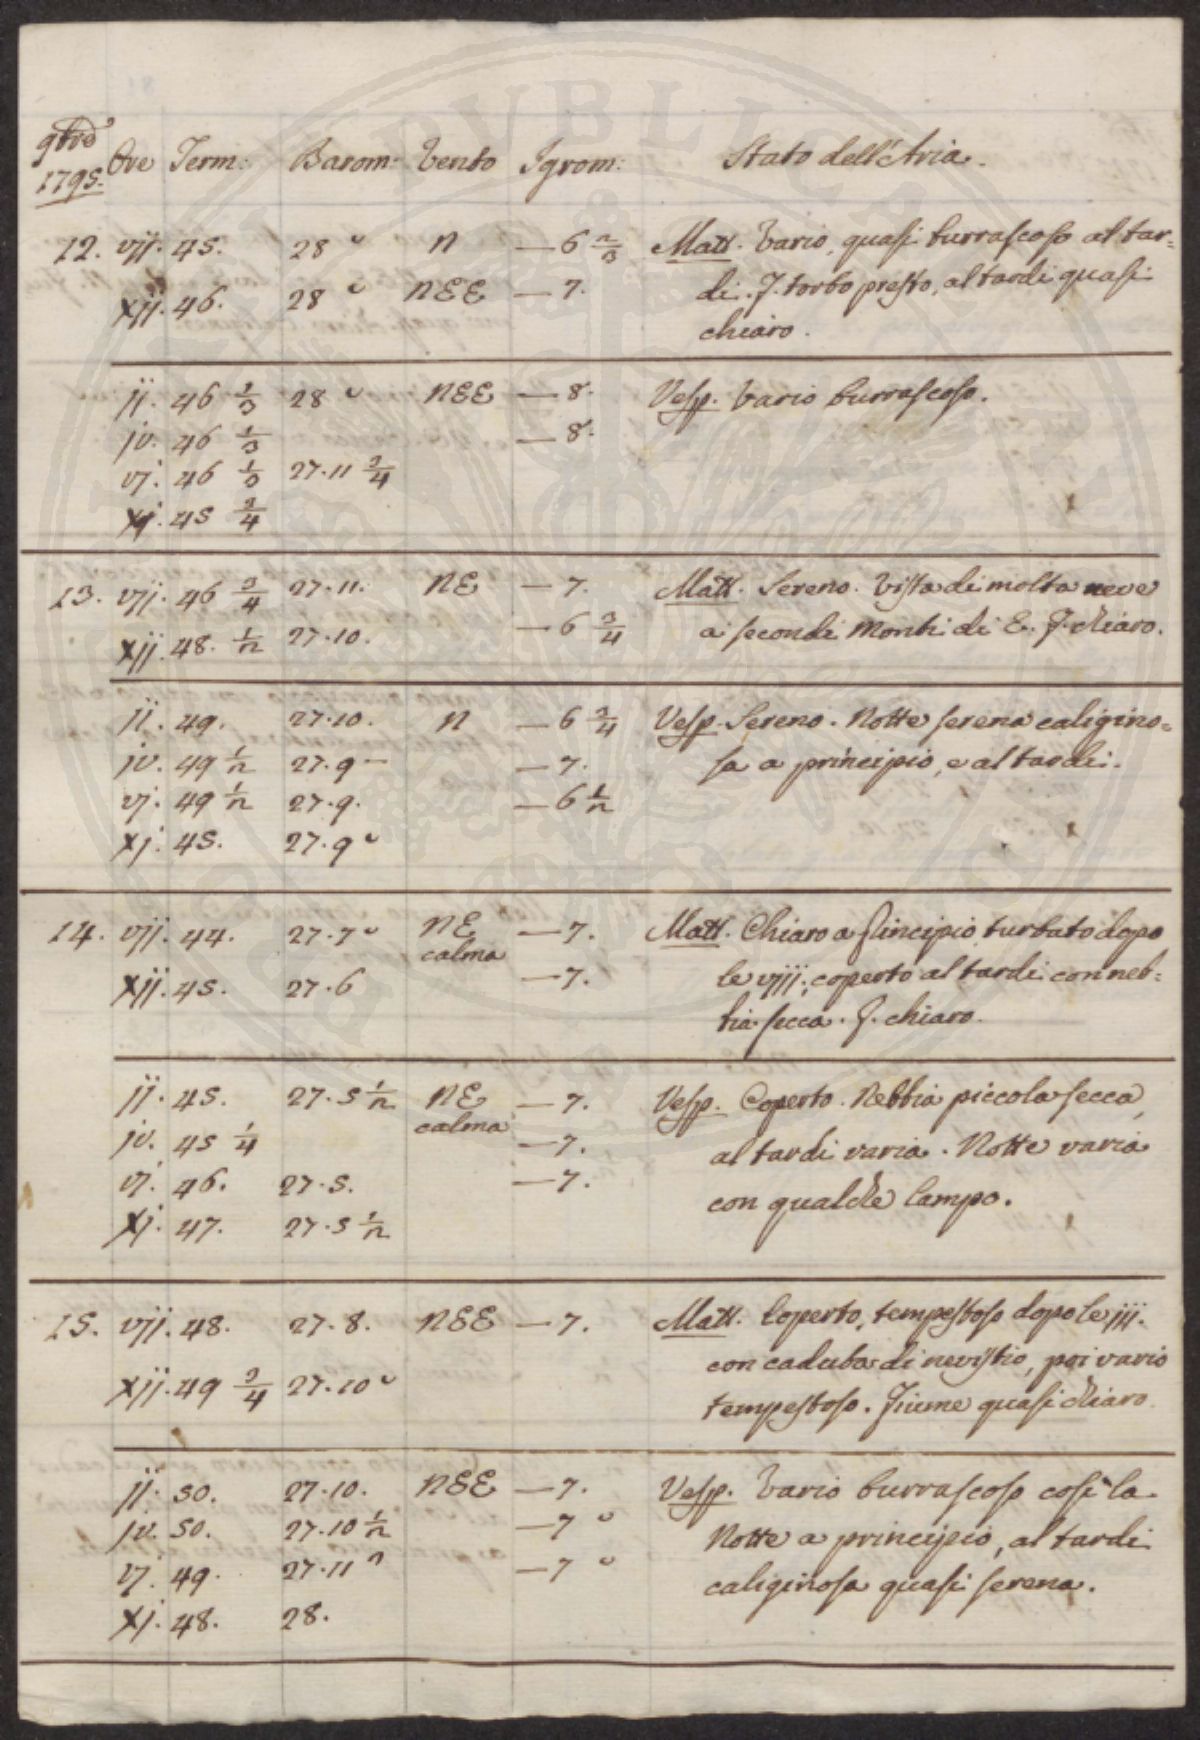 9bre 1795. Ore Term: Barom: Vento Igrom: Stato dell'Aria.
12. vij. 45. 28 ᵕ N — 6 2/3 Matt. Vario, quasi burrascoso al tar=
di. F. torbo presto, al tardi quasi
xij. 46. 28 ᵕ NEE — 7.
chiaro.
ij. 46 1/3 28 ᵕ NEE — 8. Vesp. Vario burrascoso.
iv. 46 1/3 — 8.
vj. 46 1/3 27.11 3/4
xj. 45 3/4
13. vij. 46 3/4 27.11. NE — 7. Matt. Sereno. Vista di molta neve
xij. 48. 1/2 27.10. — 6 3/4 a' secondi Monti di E. F. chiaro.
ij. 49. 27.10. N — 6 3/4 Vesp. Sereno. Notte serena caligino=
iv. 49 1/2 27.9 – — 7. sa a principio, e al tardi.
vj. 49 1/2 27.9. — 6 1/2
xj. 45. 27.9 ᵕ
14. vij. 44. 27.7 ᵕ NE calma — 7. Matt. Chiaro a principio, turbato dopo
xij. 45. 27.6 — 7. le viij; coperto al tardi con neb=
bia secca. F. chiaro.
ij. 45. 27.5 1/2 NE calma — 7. Vesp. Coperto. Nebbia piccola secca,
iv. 45 1/4 — 7. al tardi varia. Notte varia
vj. 46. 27.5. — 7. con qualche lampo.
xj. 47. 27.5 1/2
15. vij. 48. 27.8. NEE — 7. Matt. Coperto, tempestoso dopo le iij.
con caduta di nevistio, poi vario
xij. 49 3/4 27.10 ᵕ
tempestoso. Fiume quasi chiaro.
ij. 50. 27.10. NEE — 7. Vesp. Vario burrascoso così la
iv. 50. 27.10 1/2 — 7 ᵕ Notte a principio, al tardi
vj. 49. 27.11 ^ — 7 ᵕ caliginosa quasi serena.
xj. 48. 28.